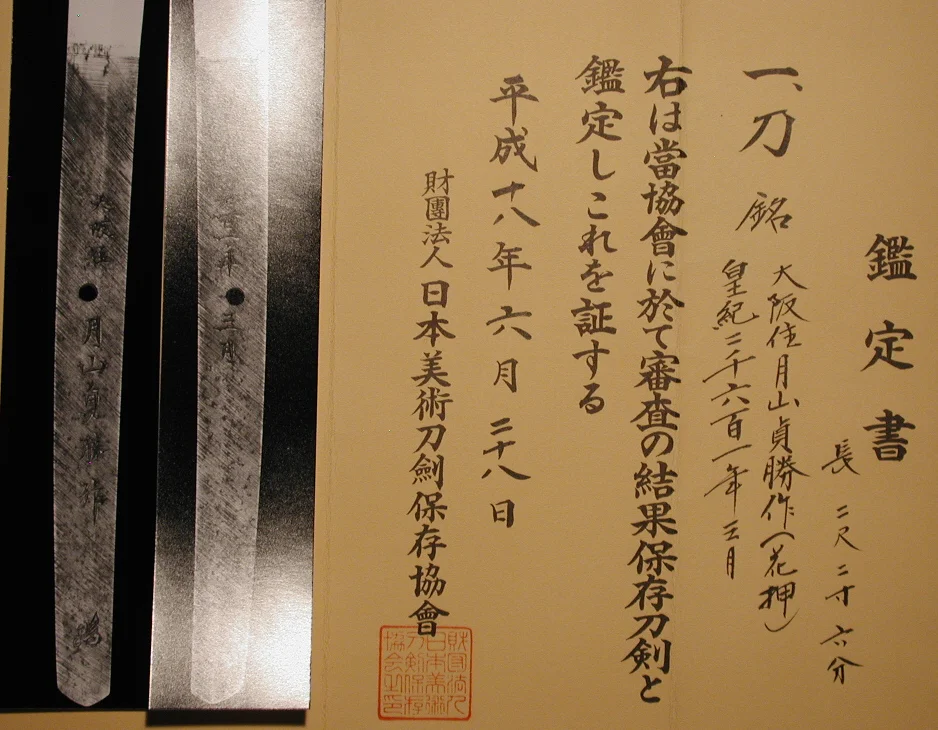 鑑定書
一、刀
銘
大阪住月山貞勝作(花押)
皇紀二千六百一年三月
長 二尺二寸六分
右は當協會に於て審査の結果保存刀剣と
鑑定しこれを証する
平成十八年六月二十八日
財團法人日本美術刀劍保存協會
財団法人
日本美術
刀剣保存
協会之印
年三月
大阪住月山貞勝作